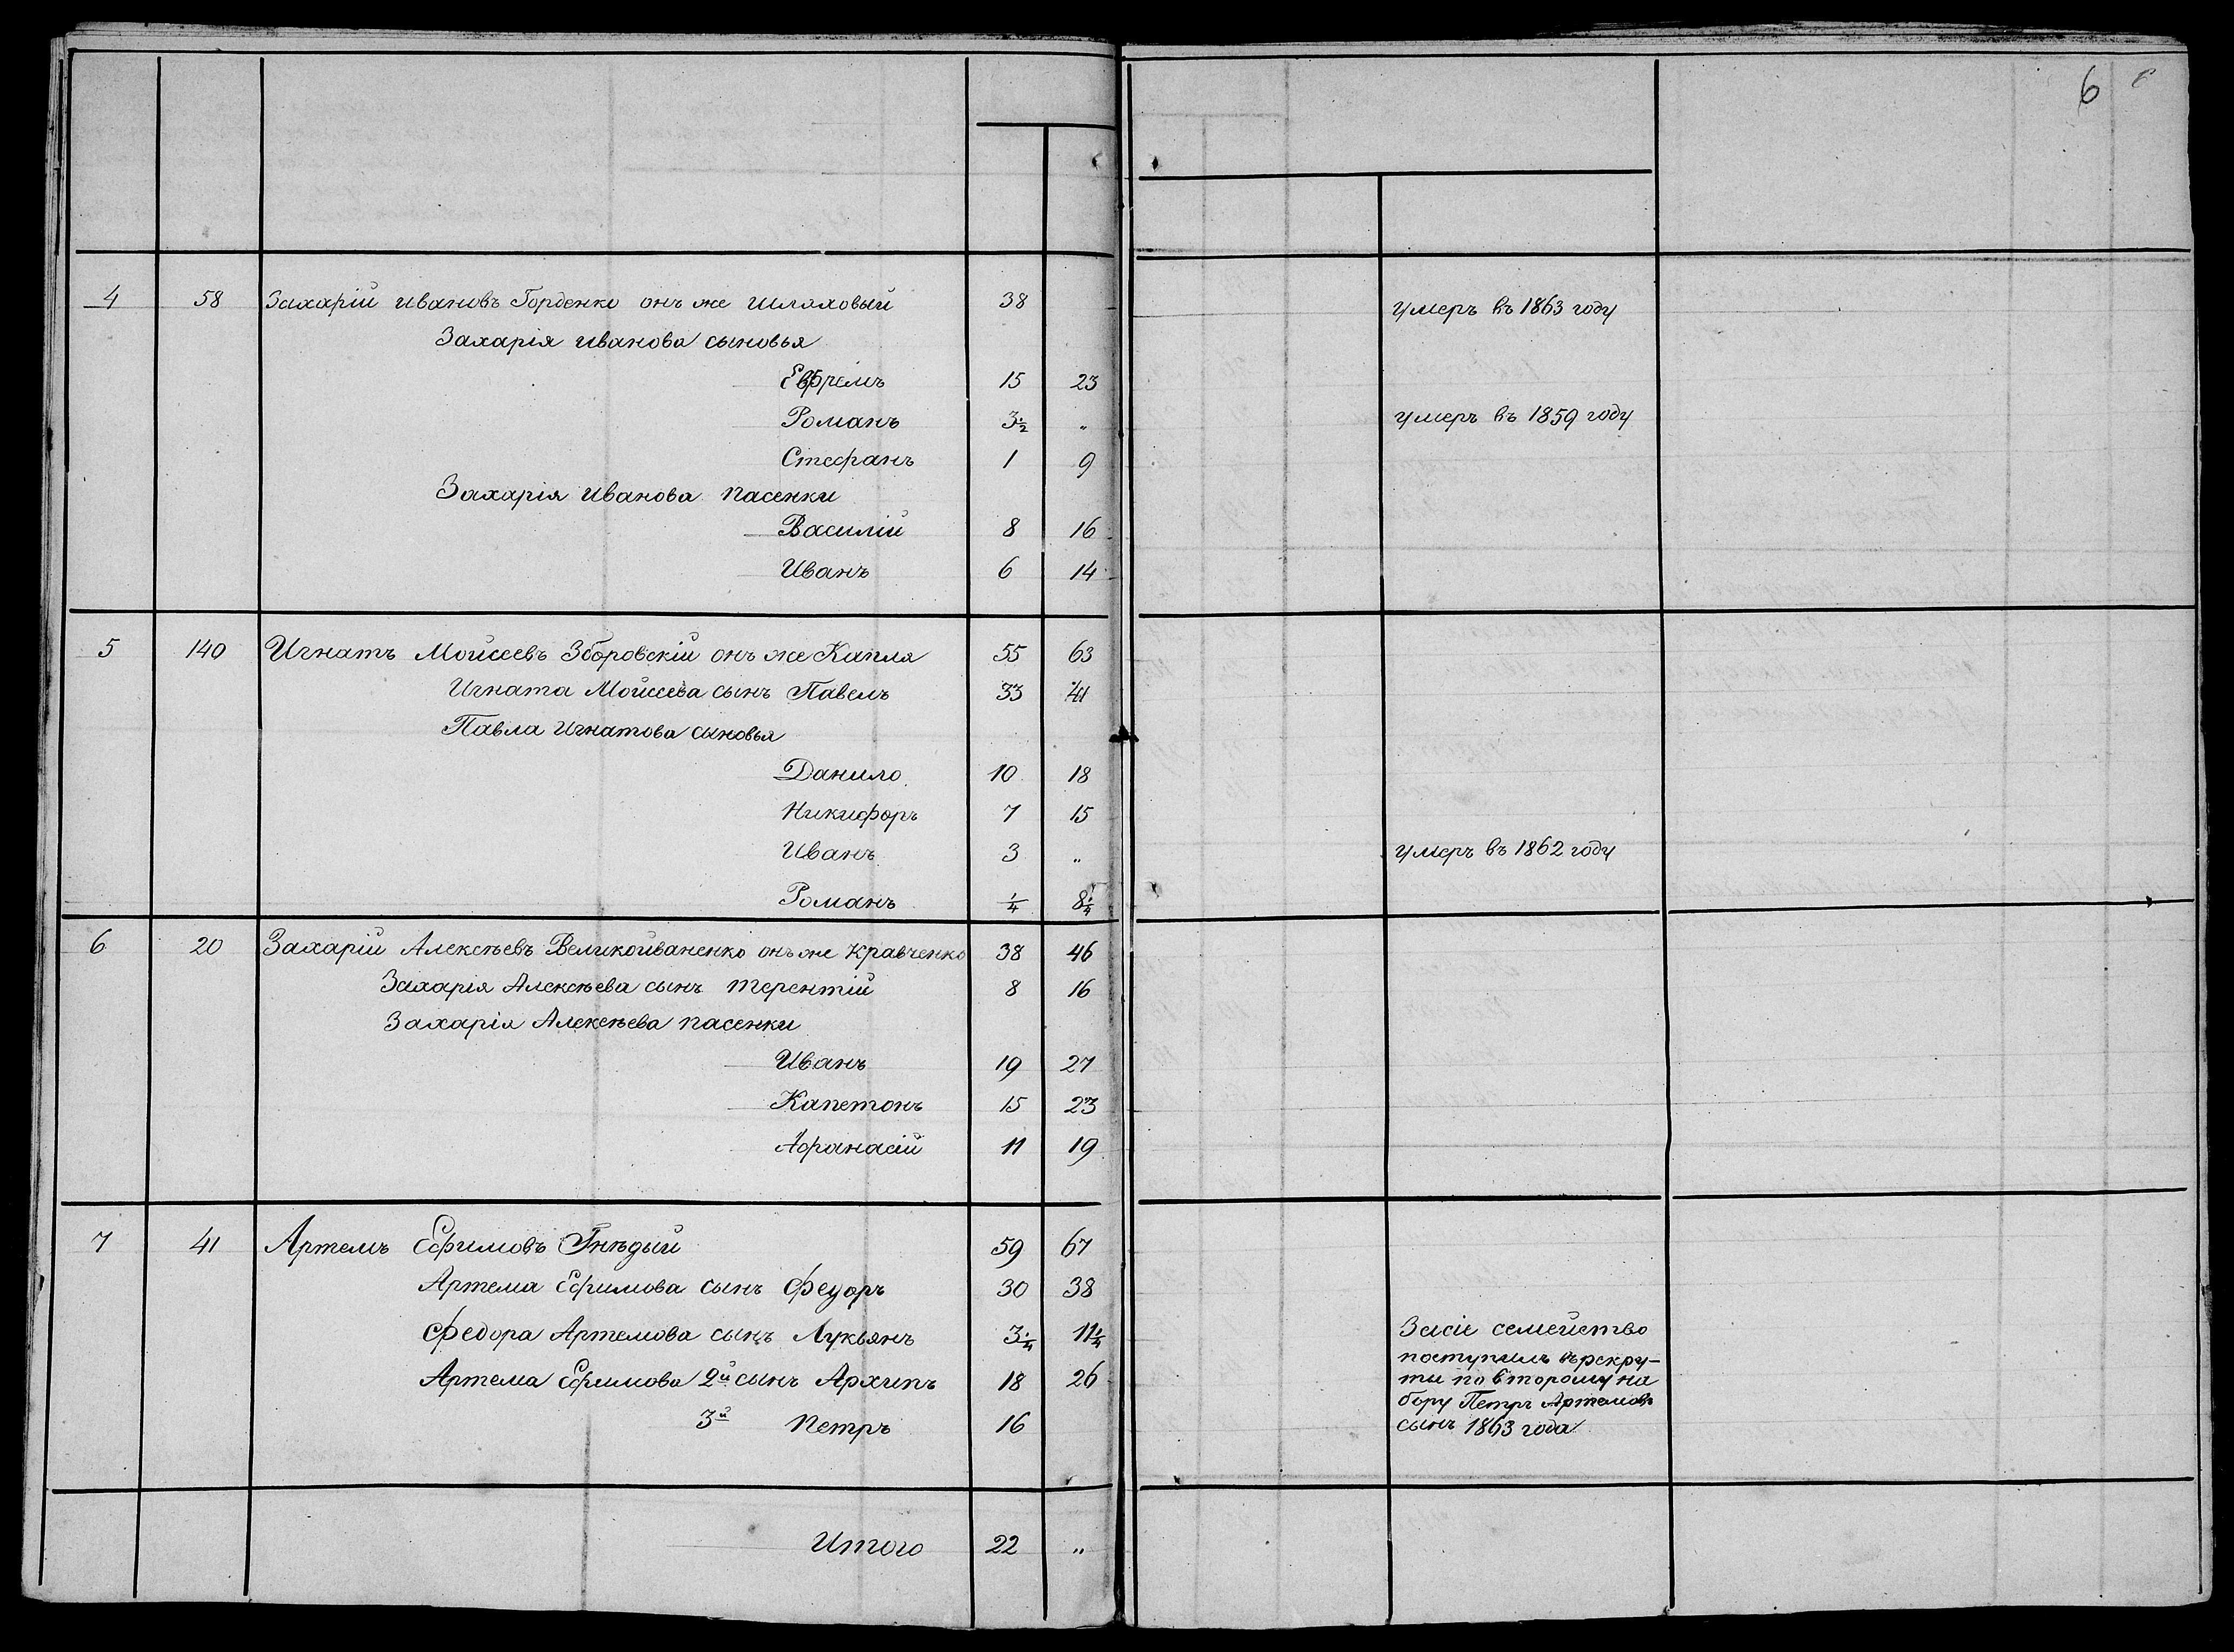 6
4 58 Захарій Ивановъ Горденко онъ же Шляховый 38 умеръ въ 1863 году
Захарія Иванова сыновья
Ефремъ 15 23
Романъ 3½ „ умеръ въ 1859 году
Стефанъ 1 9
Захарія Иванова пасенки
Василій 8 16
Иванъ 6 14
5 140 Игнатъ Мойсеевъ Зборовскій онъ же Капля 55 63
Игната Мойсеева сынъ Павелъ 33 41
Павла Игнатова сыновья
Данило 10 18
Никифоръ 7 15
Иванъ 3 „ умеръ въ 1862 году
Романъ ¼ 8¼
6 20 Захарій Алексѣевъ Великойваненко онъ же Кравченко 38 46
Захарія Алексѣева сынъ Терентій 8 16
Захарія Алексѣева пасенки
Иванъ 19 27
Капетонъ 15 23
Афанасій 11 19
7 41 Артемъ Ефимовъ Гнѣдый 59 67
Артема Ефимова сынъ Федоръ 30 38
Федора Артемова сынъ Лукьянъ 3¼ 11¼
Артема Ефимова 2й сынъ Архипъ 18 26
3й Петръ 16
Засіе семейство
поступилъ върекру-
ты по второму на
бору Петръ Артемовъ
сынъ 1863 года
Итого 22 „